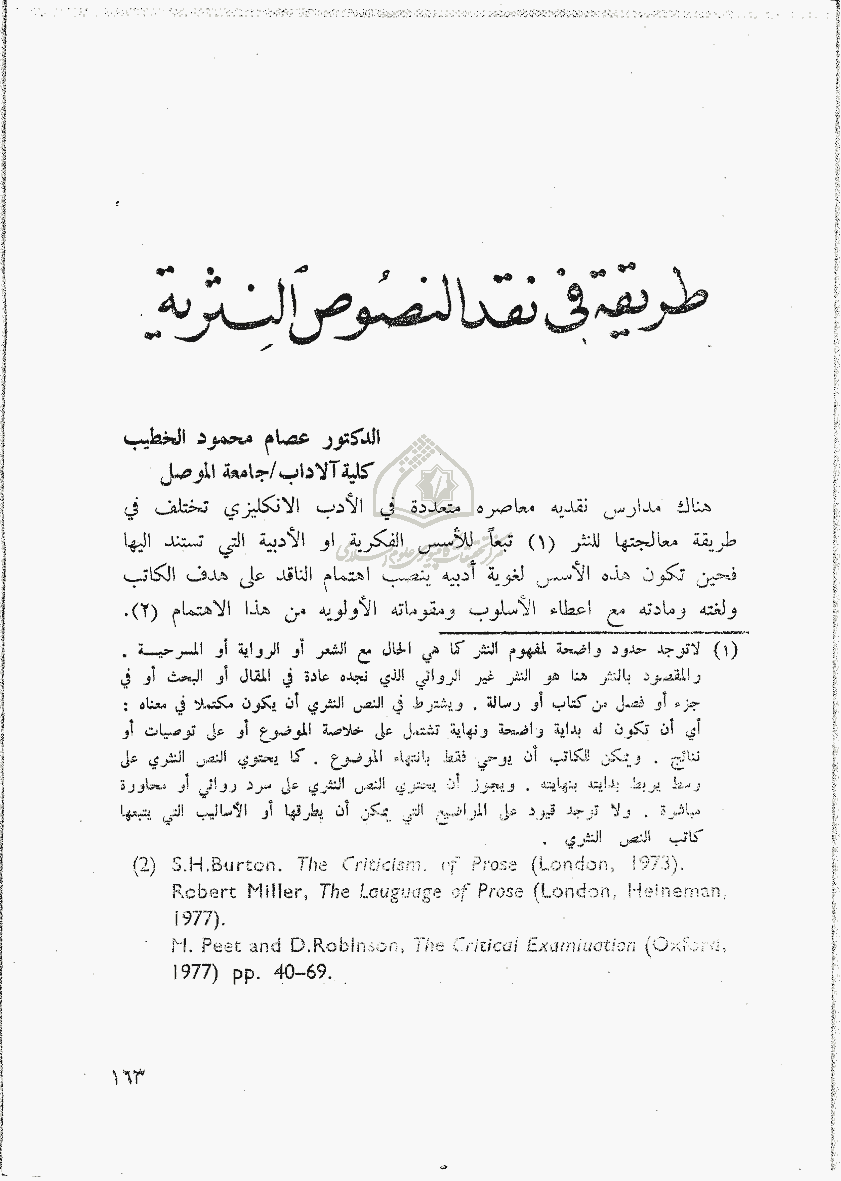 طريقة في نقد النصوص النثرية
الدكتور عصام محمود الخطيب
كلية الآداب/جامعة الموصل
هناك مدارس نقديه معاصره متعددة في الأدب الانكليزي تختلف في
طريقة معالجتها للنثر (١) تبعاً للأسس الفكرية او الأدبية التي تستند اليها
فحين تكون هذه الأسس لغوية أدبيه ينصب اهتمام الناقد على هدف الكاتب
ولغته ومادته مع اعطاء الأسلوب ومقوماته الأولويه من هذا الاهتمام (٢).
(١) لاتوجد حدود واضحة لمفهوم النثر كما هي الحال مع الشعر أو الرواية أو المسرحيـة .
والمقصود بالنثر هنا هو النثر غير الروائي الذي نجده عادة في المقال أو البحث أو في
جزء أو فصل من كتاب أو رسالة . ويشترط في النص النثري أن يكون مكتملا في معناه :
أي أن تكون له بداية واضحة ونهاية تشتمل على خلاصة الموضوع أو على توصيات أو
نتائج . ويمكن للكاتب أن يوحي فقط بانتهاء الموضوع . كما يحتوي النص النثري على
وسط يربط بدايته بنهايته . ويجوز أن يحتوي النص النثري على سرد روائي أو محاورة
مباشرة . ولا توجد قيود على المواضيع التي يمكن أن يطرقها أو الأساليب التي يتبعها
كاتب النص النثري .
(2) S.H.Burton. The Criticism. of Prose (London, 1973).
Robert Miller, The Lauguage of Prose (London, Heineman,
1977).
M. Peet and D.Robinson, The Critical Examiuation (Oxford,
1977) pp. 40–69.
١٦٣